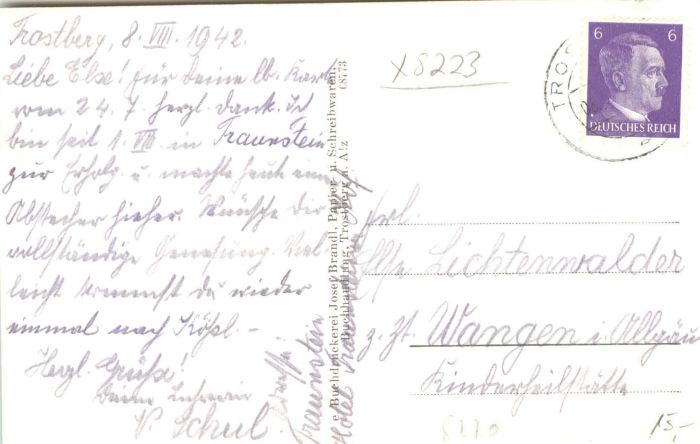 Trostberg, 8. VIII. 1942.
Liebe Else! Für Deine lb. Karte
vom 24.7. herzl. Dank. Ich
bin seit 1. VIII. in Traunstein
zur Erholg. u. machte heute einen
Abstecher hieher. Wünsche Dir
vollständige Genesung. Viel-
leicht kommst Du wieder
einmal nach Kößl. –
Herzl. Grüße!
Deine Lehrerin
Schul
Adresse:
Traunstein
Hotel
Buchdruckerei Josef Brandl, Papier- u. Schreibwaren,
Buchhandlung, Trostberg a. Alz
C8773
X8223
TROS
6 6
DEUTSCHES REICH
Frl.
Else Lichtenwalder
z. Zt. Wangen i. Allgäu
Kinderheilstätte
15,-